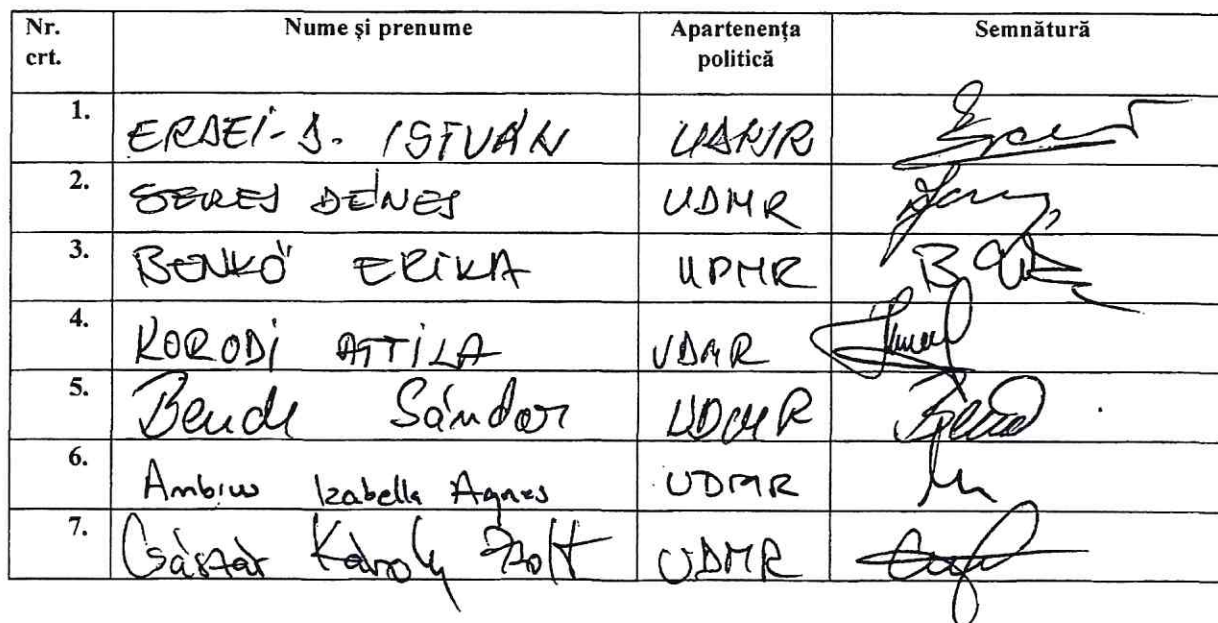 Nr. crt. Nume și prenume Apartenența politică Semnătură
1. ERDEI-D. ISTVÁN UDMR
2. SERES DÉNES UDMR
3. BENKŐ ERIKA UDMR
4. KORODI ATTILA UDMR
5. Bende Sándor UDMR
6. Ambrus Izabella Agnes UDMR
7. Császár Károly Zsolt UDMR